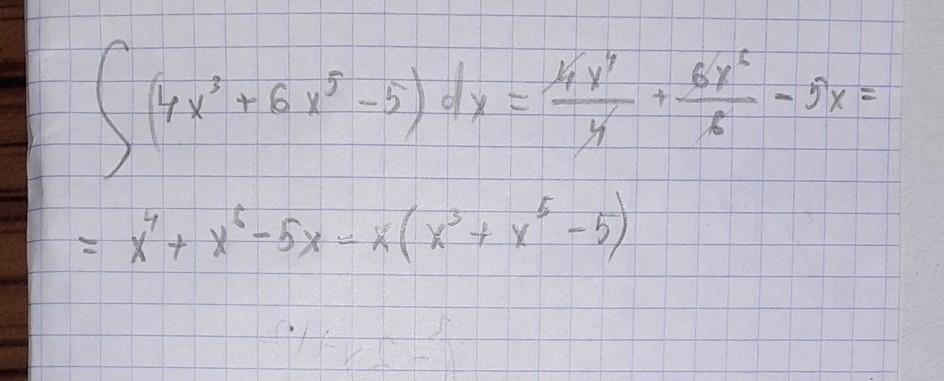 ∫ (4x³ + 6x⁵ - 5) dx = 4x⁴/4 + 6x⁶/6 - 5x =
= x⁴ + x⁶ - 5x = x(x³ + x⁵ - 5)